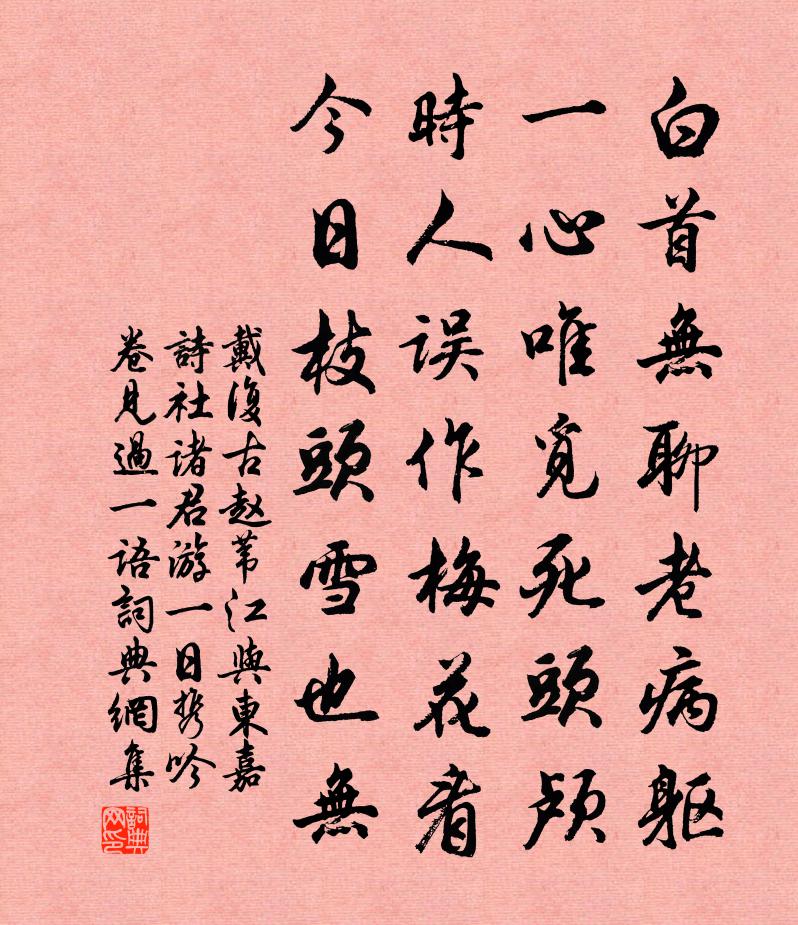 白首無聊老病軀
一心唯覓死頭顱
時人误作梅花看
今日枝頭雪也無
戴復古赵苇江與東嘉
詩社诸君游一日携吟
卷見過一语詞典網集
詞典网印